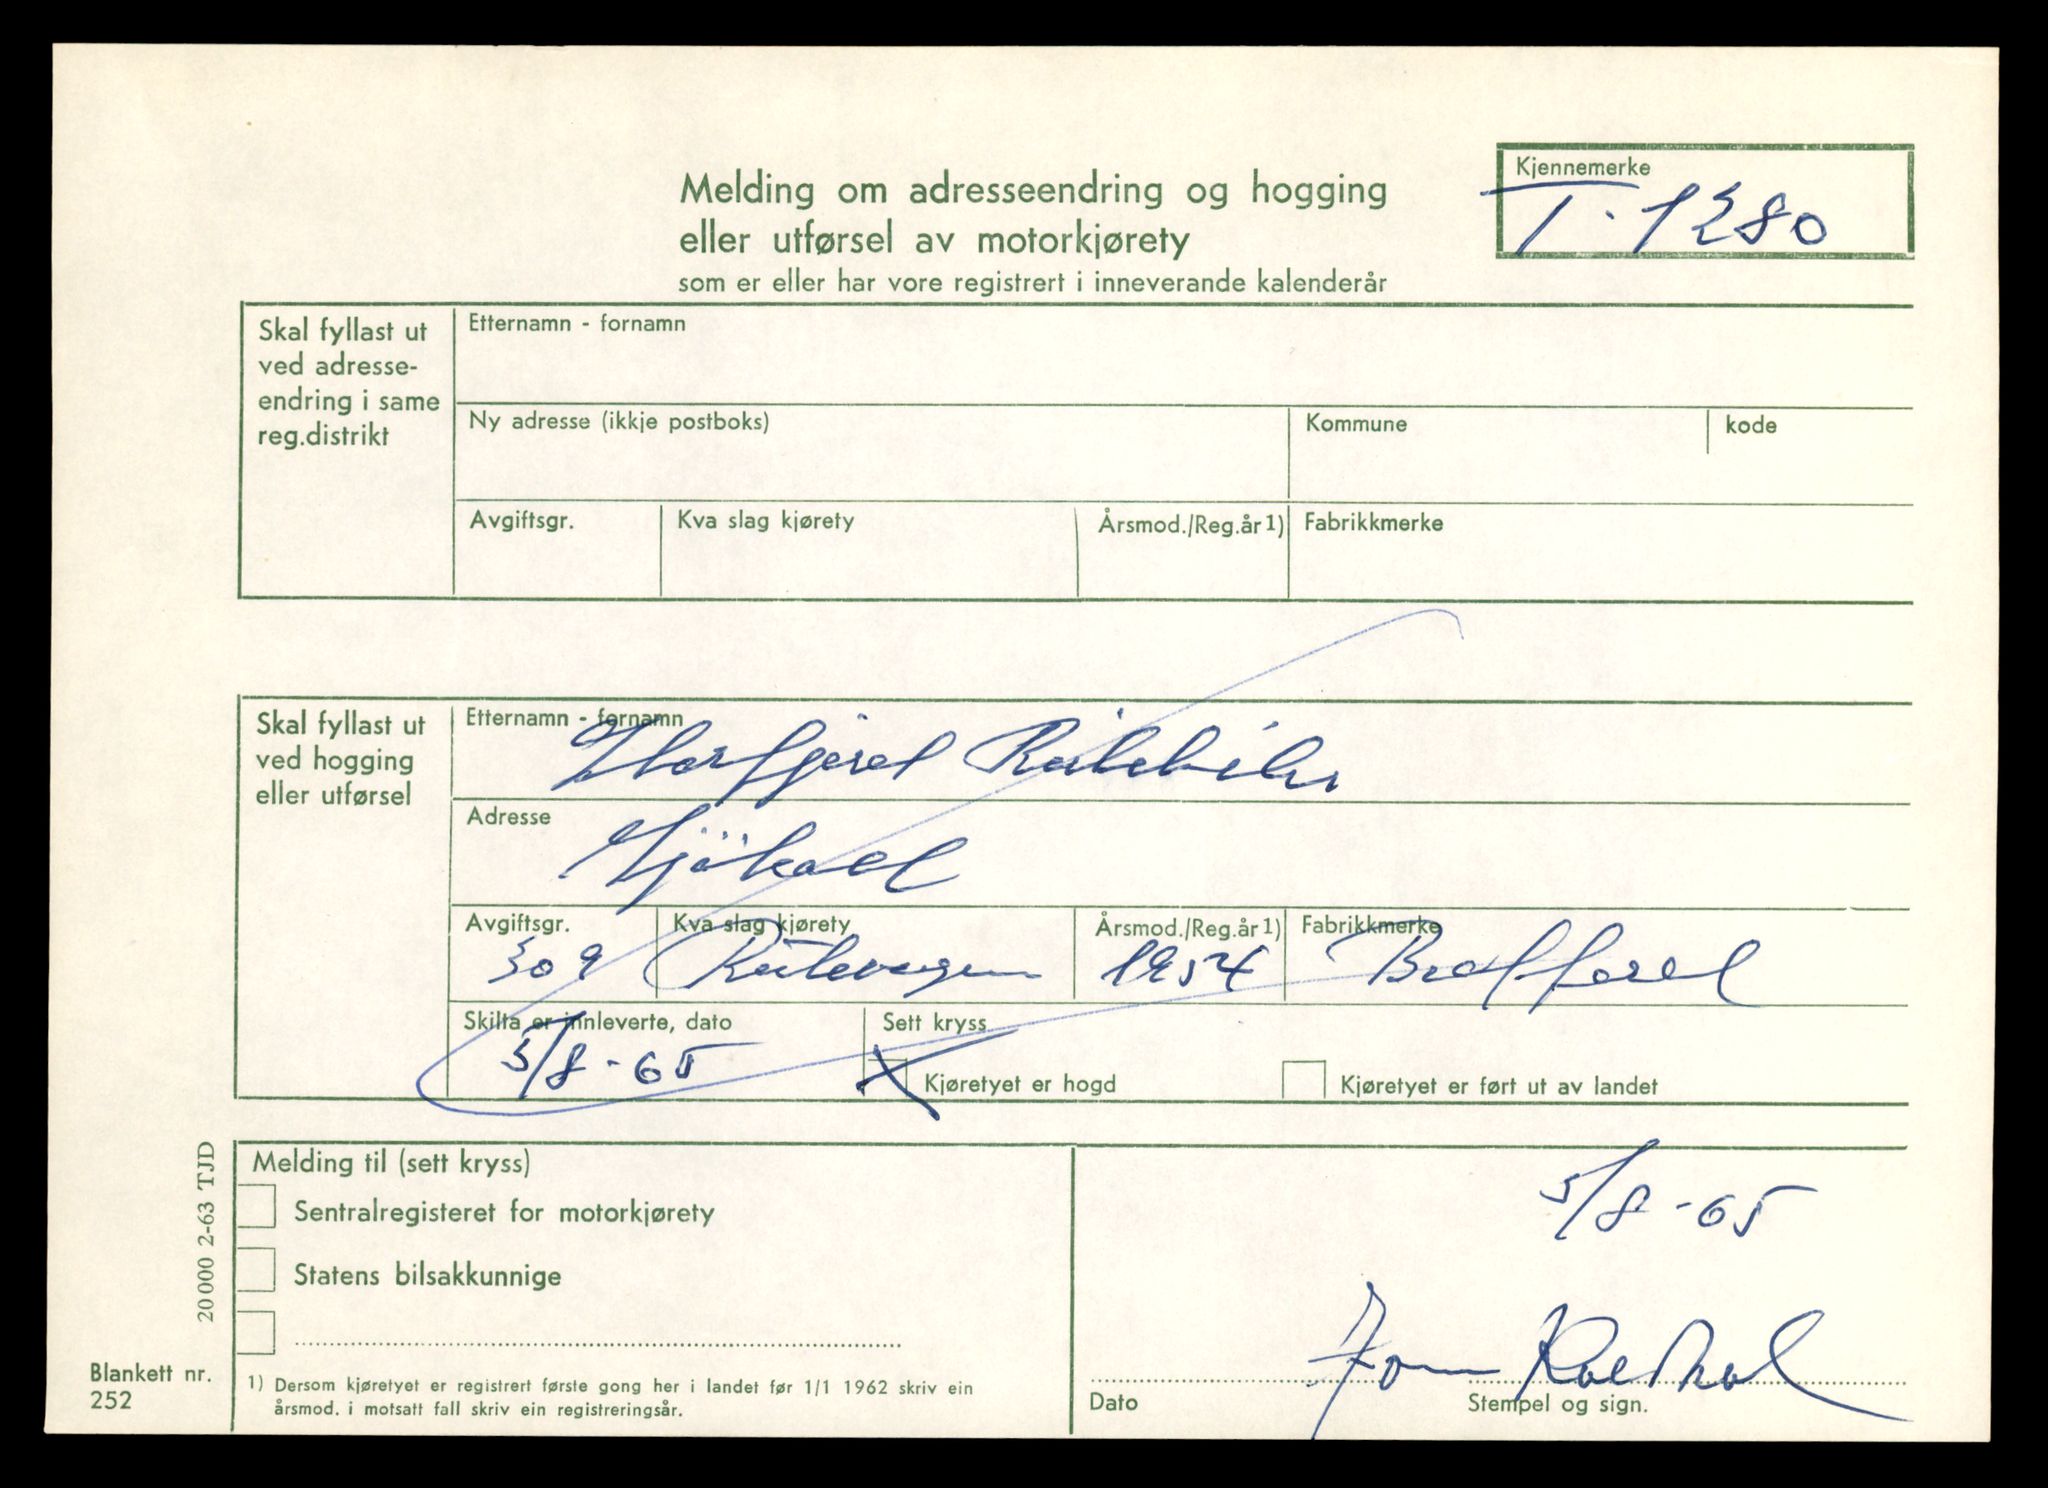 Kjennemerke
T-1380
Melding om adresseendring og hogging
eller utførsel av motorkjørety
som er eller har vore registrert i inneverande kalenderår
Skal fyllast ut
ved adresse-
endring i same
reg.distrikt
Etternamn - fornamn
Ny adresse (ikkje postboks)
Kommune
kode
Avgiftsgr.
Kva slag kjørety
Årsmod./Reg.år 1)
Fabrikkmerke
Skal fyllast ut
ved hogging
eller utførsel
Etternamn - fornamn
Rutebiler
Adresse
Avgiftsgr.
309
Kva slag kjørety
Rutevogn
Årsmod./Reg.år 1)
1954
Fabrikkmerke
Bedford
Skilta er innleverte, dato
5/8-65
Sett kryss
X Kjøretyet er hogd
Kjøretyet er ført ut av landet
Melding til (sett kryss)
Sentralregisteret for motorkjørety
Statens bilsakkunnige
5/8-65
Dato
Stempel og sign.
1) Dersom kjøretyet er registrert første gong her i landet før 1/1 1962 skriv ein
årsmod. i motsatt fall skriv ein registreringsår.
20000 2-63 TJD
Blankett nr.
252